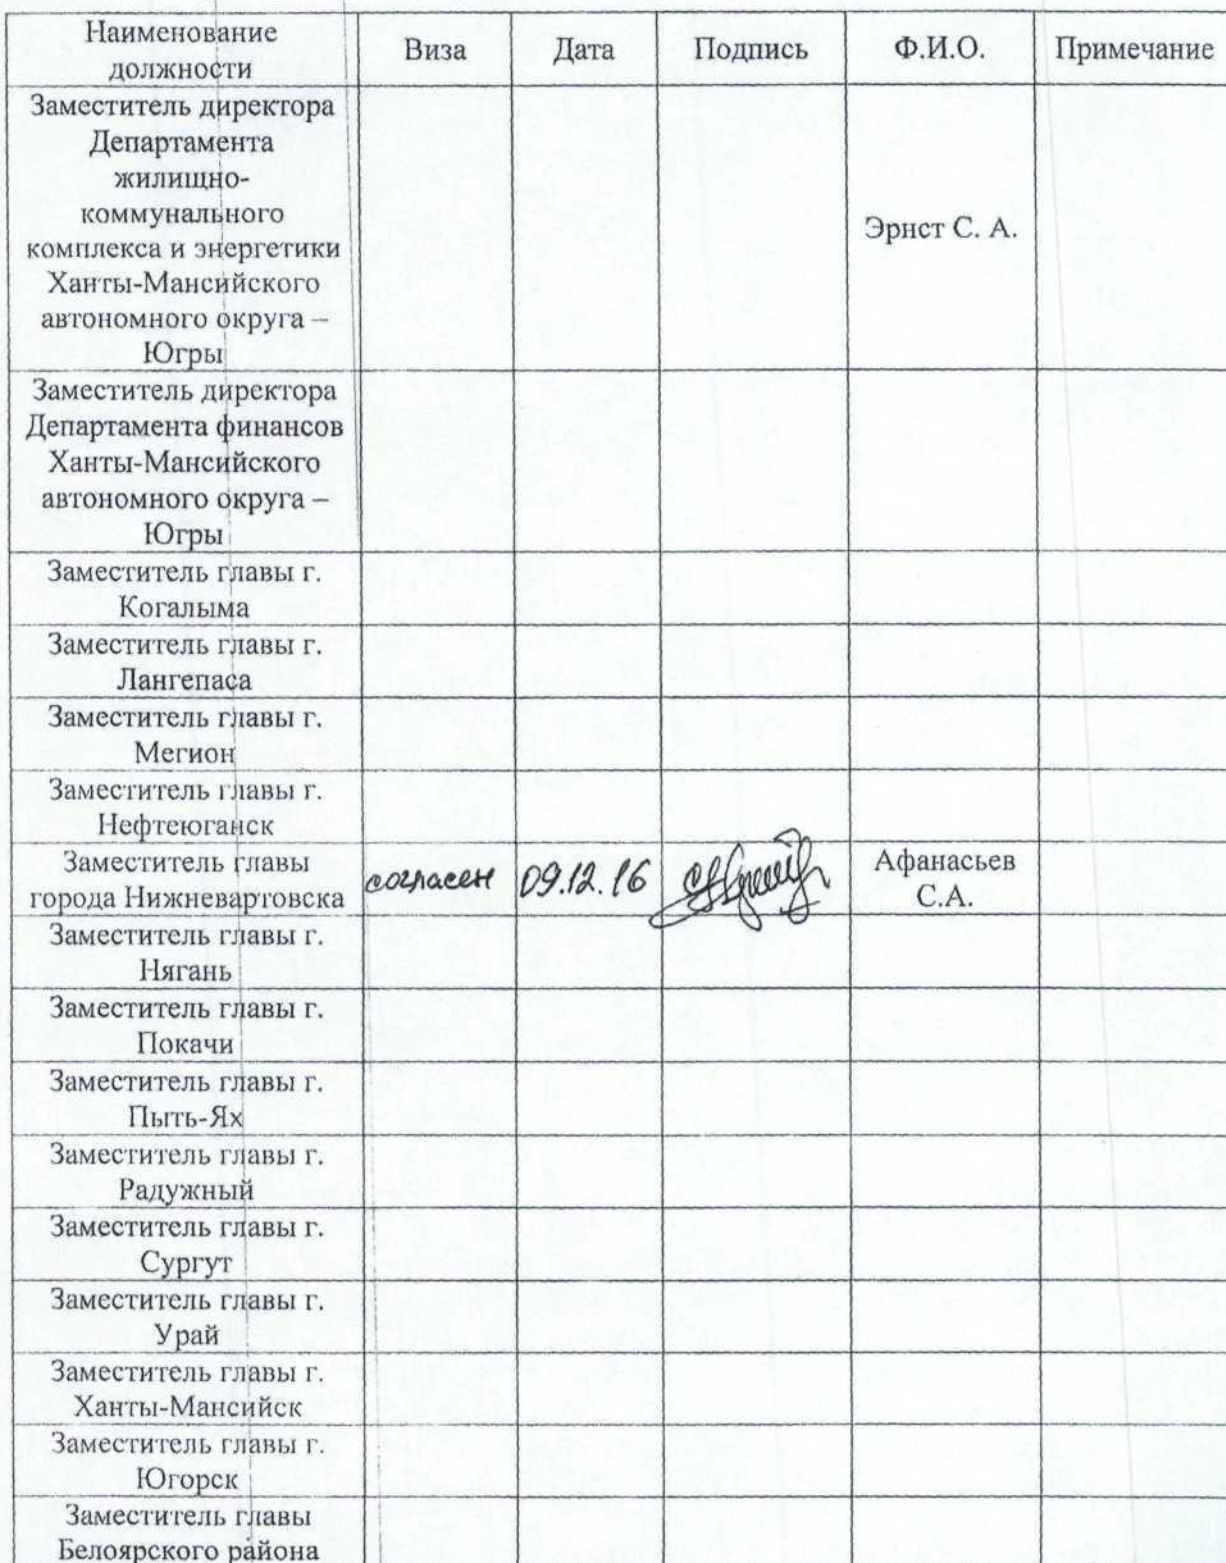 Наименование
должности
Виза
Дата
Подпись
Ф.И.О.
Примечание
Заместитель директора
Департамента
жилищно-
коммунального
комплекса и энергетики
Ханты-Мансийского
автономного округа –
Югры
Эрнст С. А.
Заместитель директора
Департамента финансов
Ханты-Мансийского
автономного округа –
Югры
Заместитель главы г.
Когалыма
Заместитель главы г.
Лангепаса
Заместитель главы г.
Мегион
Заместитель главы г.
Нефтеюганск
Заместитель главы
города Нижневартовска
согласен
09.12.16
Афанасьев
С.А.
Заместитель главы г.
Нягань
Заместитель главы г.
Покачи
Заместитель главы г.
Пыть-Ях
Заместитель главы г.
Радужный
Заместитель главы г.
Сургут
Заместитель главы г.
Урай
Заместитель главы г.
Ханты-Мансийск
Заместитель главы г.
Югорск
Заместитель главы
Белоярского района